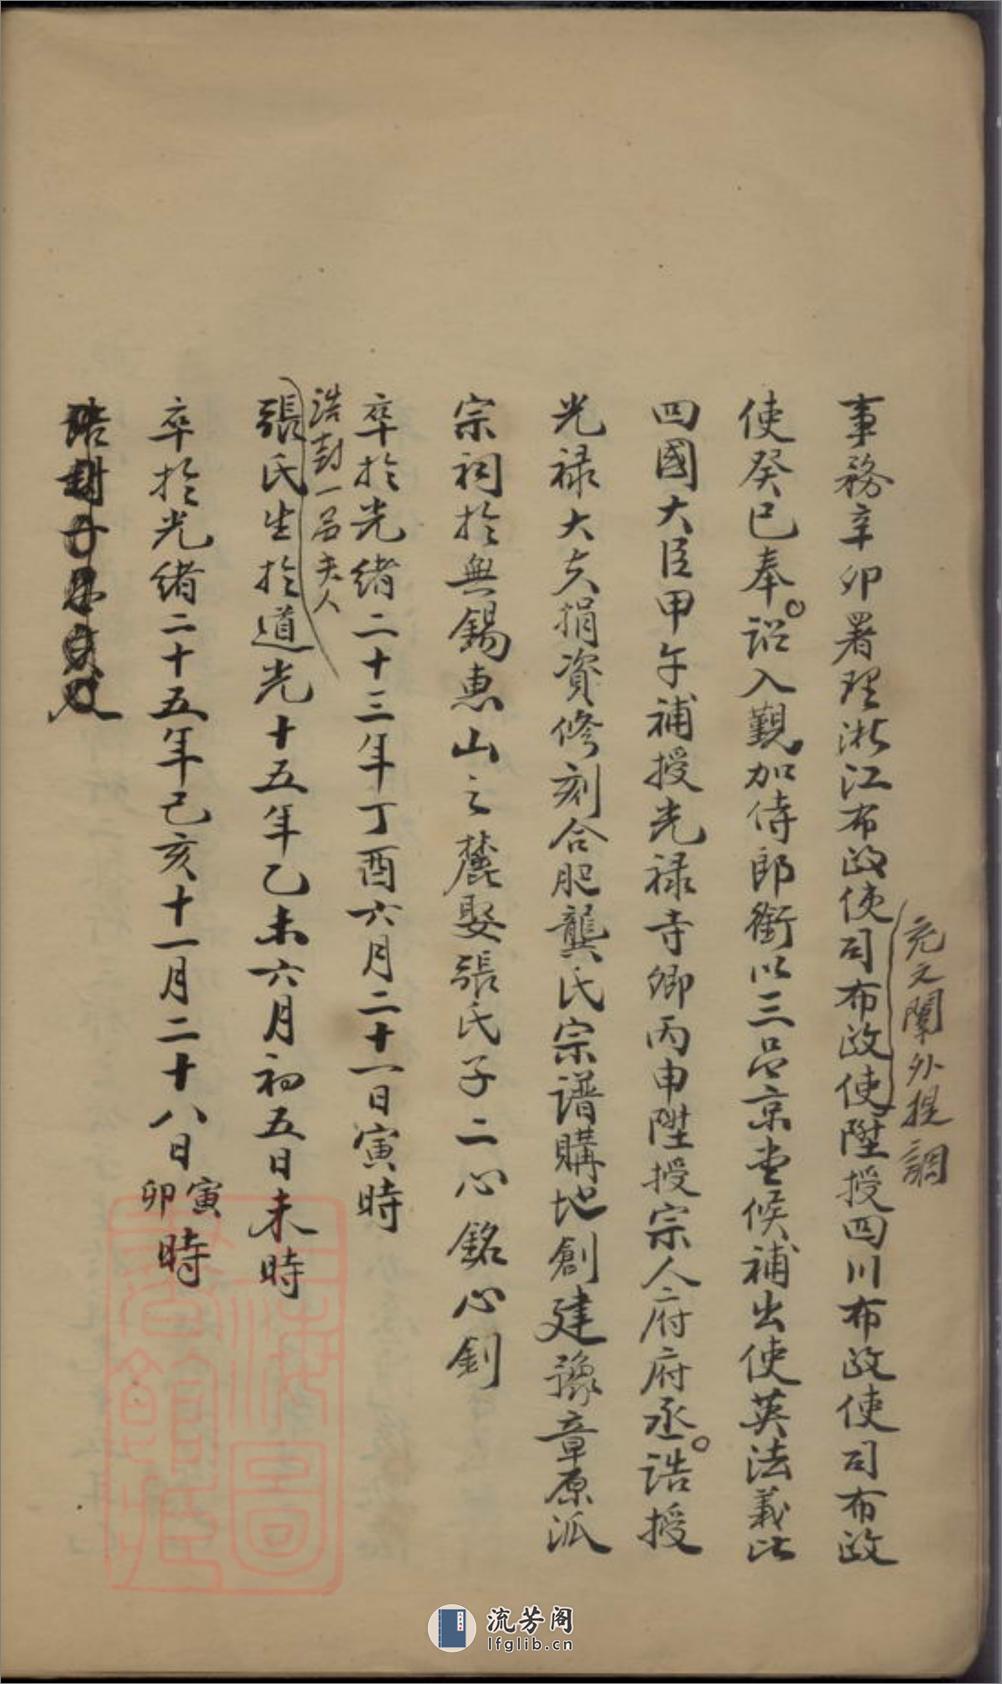 充文闈外提調
事務辛卯署理淅江布政使司布政使陞授四川布政使司布政
使癸巳奉。詔入覲加侍郎銜以三品京堂候補出使英法義比
四國大臣甲午補授光禄寺卿丙申陞授宗人府府丞。誥授
光禄大夫捐資修刻合肥龔氏宗谱購地創建豫章原派
宗祠於無錫惠山之麓娶張氏子二心銘心釗
卒於光緒二十三年丁酉六月二十一日寅時
誥封一品夫人
張氏生於道光十五年乙未六月初五日未時
卒於光緒二十五年己亥十一月二十八日寅卯時
誥封
上海圖書館藏
流芳阁
lfglib.cn